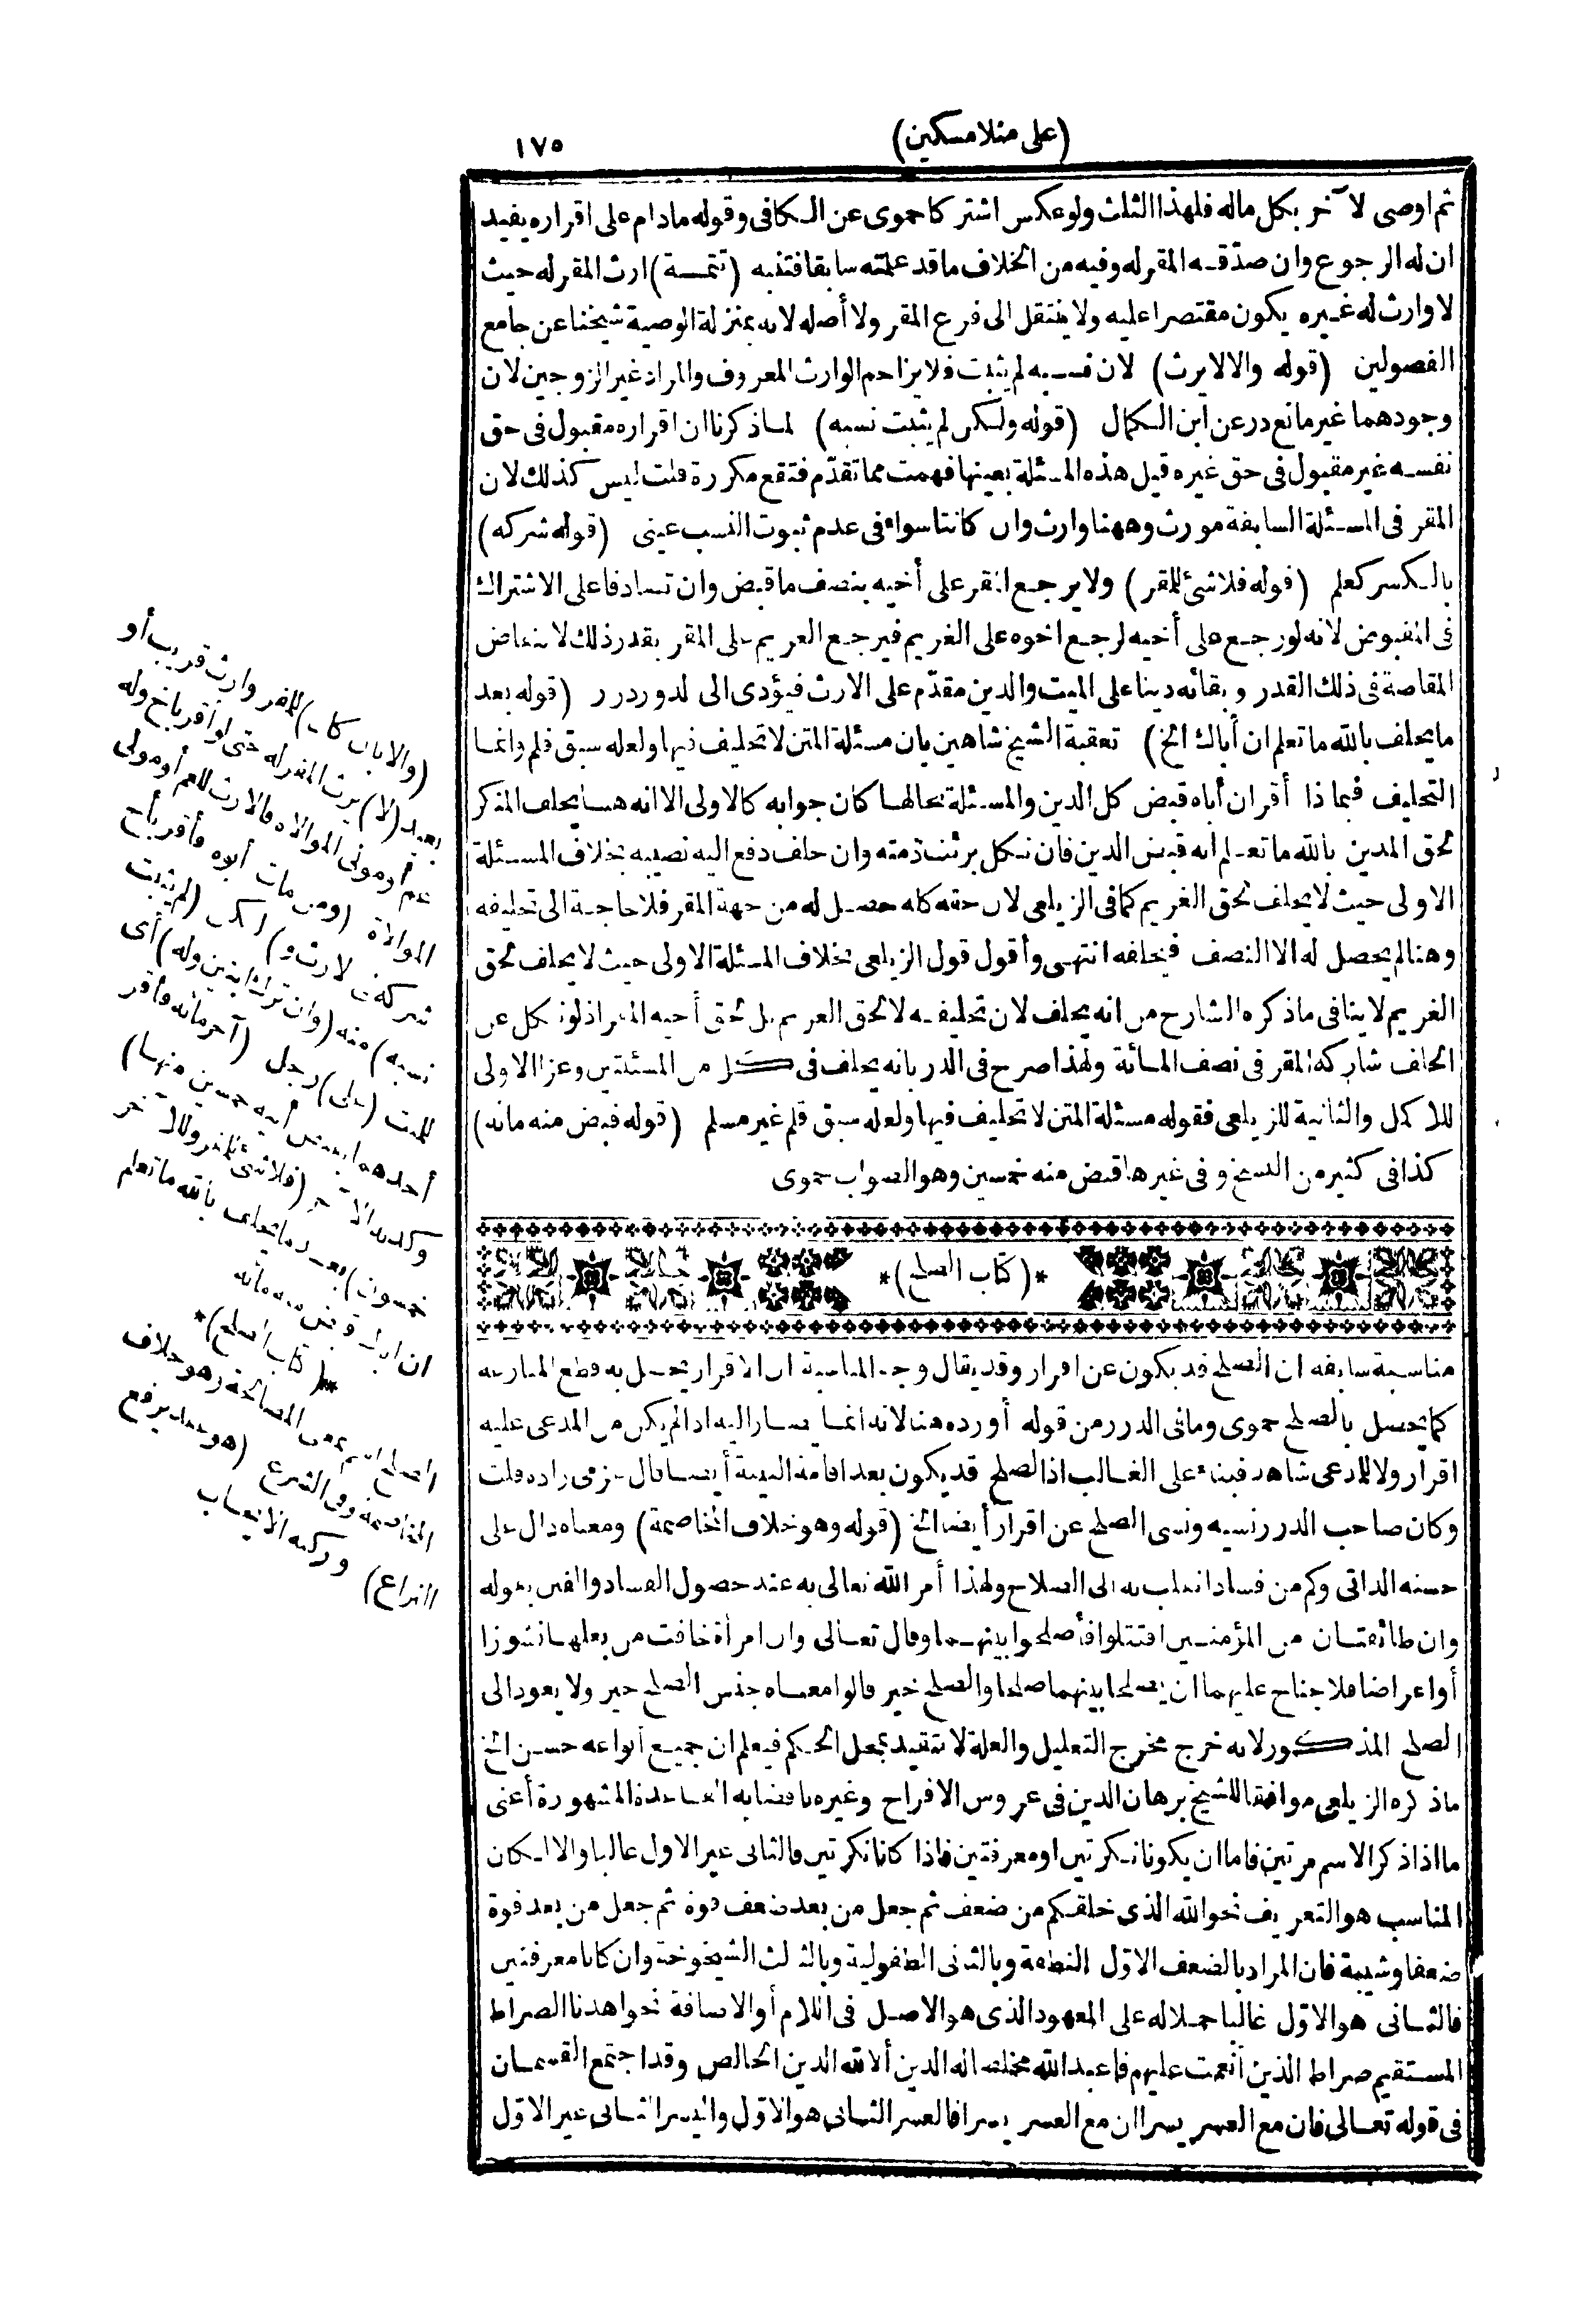 (على منلا مسكين)
١٧٥
ثم اوصى لآخر بكل ماله فلهذا الثلث ولو عكس اشتركا حموى عن الكافى وقوله مادام على اقراره يفيد
ان له الرجوع وان صدّقه المقر له وفيه من الخلاف ما قد علمته سابقا فتنبه (تتمة) ارث المقر له حيث
لا وارث له غيره يكون مقتصرا عليه ولا ينتقل الى فرع المقر ولا أصله لانه بمنزلة الوصية شيخنا عن جامع
الفصولين (قوله والا لا يرث) لان نسبه لم يثبت فلا يزاحم الوارث المعروف والمراد غير الزوجين لان
وجودهما غير مانع در عن ابن الكمال (قوله ولكن لم يثبت نسبه) لما ذكرنا ان اقراره مقبول فى حق
نفسه غير مقبول فى حق غيره قيل هذه المسئلة بعينها فهمت مما تقدّم فتقع مكررة قلت ليس كذلك لان
المقر فى المسئلة السابقة مورث وههنا وارث وان كانتا سواء فى عدم ثبوت النسب عينى (قوله شركه)
بالكسر كعلم (قوله فلا شئ للمقر) ولا يرجع المقر على أخيه بنصف ما قبض وان تصادقا على الاشتراك
فى المقبوض لانه لو رجع على أخيه لرجع اخوه على الغريم فيرجع الغريم على المقر بقدر ذلك لانتقاض
المقاصة فى ذلك القدر وبقائه دينا على الميت والدين مقدّم على الارث فيؤدى الى الدور درر (قوله بعد
ما يحلف بالله ما تعلم ان أباك الخ) تعقبة الشيخ شاهين بان مسئلة المتن لا تحليف فيها ولعله سبق قلم وانما
التحليف فيما اذا أقر ان أباه قبض كل الدين والمسئلة بحالها كان جوابه كالاولى الا انه هنا يحلف المنكر
لحق المدين بالله ما تعلم انه قبض الدين فان نكل برئت ذمته وان حلف دفع اليه نصيبه بخلاف المسئلة
الاولى حيث لا يحلف لحق الغريم كما فى الزيلعى لان حقه كله حصل له من جهة المقر فلا حاجة الى تحليفه
وهنا لم يحصل له الا النصف فيحلفه انتهى وأقول قول الزيلعى بخلاف المسئلة الاولى حيث لا يحلف لحق
الغريم لا ينافى ما ذكره الشارح من انه يحلف لان تحليفه لا لحق الغريم بل لحق أخيه المقر اذ لو نكل عن
الحلف شاركه المقر فى نصف المائة ولهذا صرح فى الدر بانه يحلف فى كل من المسئلتين وعزا الاولى
للاكمل والثانية للزيلعى فقوله مسئلة المتن لا تحليف فيها ولعله سبق قلم غير مسلم (قوله قبض منه مائة)
كذا فى كثير من النسخ وفى غيرها قبض منه خمسين وهو الصواب حموى
*(كتاب الصلح)*
مناسبة سابقه ان الصلح قد يكون عن اقرار وقد يقال وجه المناسبة ان الاقرار يحصل به قطع المنازعة
كما يحصل بالصلح حموى وما فى الدرر من قوله أورده هنا لانه انما يصار اليه اذا لم يكن من المدعى عليه
اقرار ولا للمدعى شاهد فبناء على الغالب اذ الصلح قد يكون بعد اقامة البينة أيضا قال عزمى زاده قلت
وكان صاحب الدرر نسيه ونسى الصلح عن اقرار أيضا الخ (قوله وهو خلاف المخاصمة) ومعناه دال على
حسنه الذاتى وكم من فساد انقلب به الى الصلاح ولهذا أمر الله تعالى به عند حصول الفساد والفتن بقوله
وان طائفتان من المؤمنين اقتتلوا فأصلحوا بينهما وقال تعالى وان امرأة خافت من بعلها نشوزا
أو اعراضا فلا جناح عليهما ان يصلحا بينهما صلحا والصلح خير قالوا معناه جنس الصلح خير ولا يعود الى
الصلح المذكور لانه خرج مخرج التعليل والعلة لا تتقيد بمحل الحكم فيعلم ان جميع أنواعه حسن الخ
ما ذكره الزيلعى موافقا للشيخ برهان الدين فى عروس الافراح وغيره ناقضا به القاعدة المشهورة أعنى
ما اذا ذكر الاسم مرتين فاما ان يكونا نكرتين او معرفتين فاذا كانا نكرتين فالثانى غير الاول غالبا والا لكان
المناسب هو التعريف نحو الله الذى خلقكم من ضعف ثم جعل من بعد ضعف قوة ثم جعل من بعد قوة
ضعفا وشيبة فان المراد بالضعف الاوّل النطفة وبالثانى الطفولية وبالثالث الشيخوخة وان كانا معرفتين
فالثانى هو الاوّل غالبا حملا له على المعهود الذى هو الاصل فى اللام أو الاضافة نحو اهدنا الصراط
المستقيم صراط الذين أنعمت عليهم فاعبد الله مخلصا له الدين ألا لله الدين الخالص وقد اجتمع القسمان
فى قوله تعالى فان مع العسر يسرا ان مع العسر يسرا فالعسر الثانى هو الاوّل واليسر الثانى غير الاوّل
(والا بان كان) للمقر وارث قريب أو
بعيد (لا) يرث المقر له حتى لو أقر باخ وله
عم أو مولى الموالاة فالارث للعم أو مولى
الموالاة (ومن مات أبوه فأقر بأخ
شركه فى الارث و) لكن (لم يثبت
نسبه) منه (وان ترك ابنين وله) أى
للميت (على) رجل (آخر مائة فأقر
أحدهما بقبض أبيه خمسين منها)
وكذبه الآخر (فلا شئ للمقر وللآخر
خمسون) بعد ما يحلف بالله ما تعلم
ان اباك قبض منه مائة
*(كتاب الصلح)*
الصلح اسم بمعنى المصالحة وهو خلاف
المخاصمة وفى الشرع (هو عقد يرفع
النزاع) وركنه الايجاب